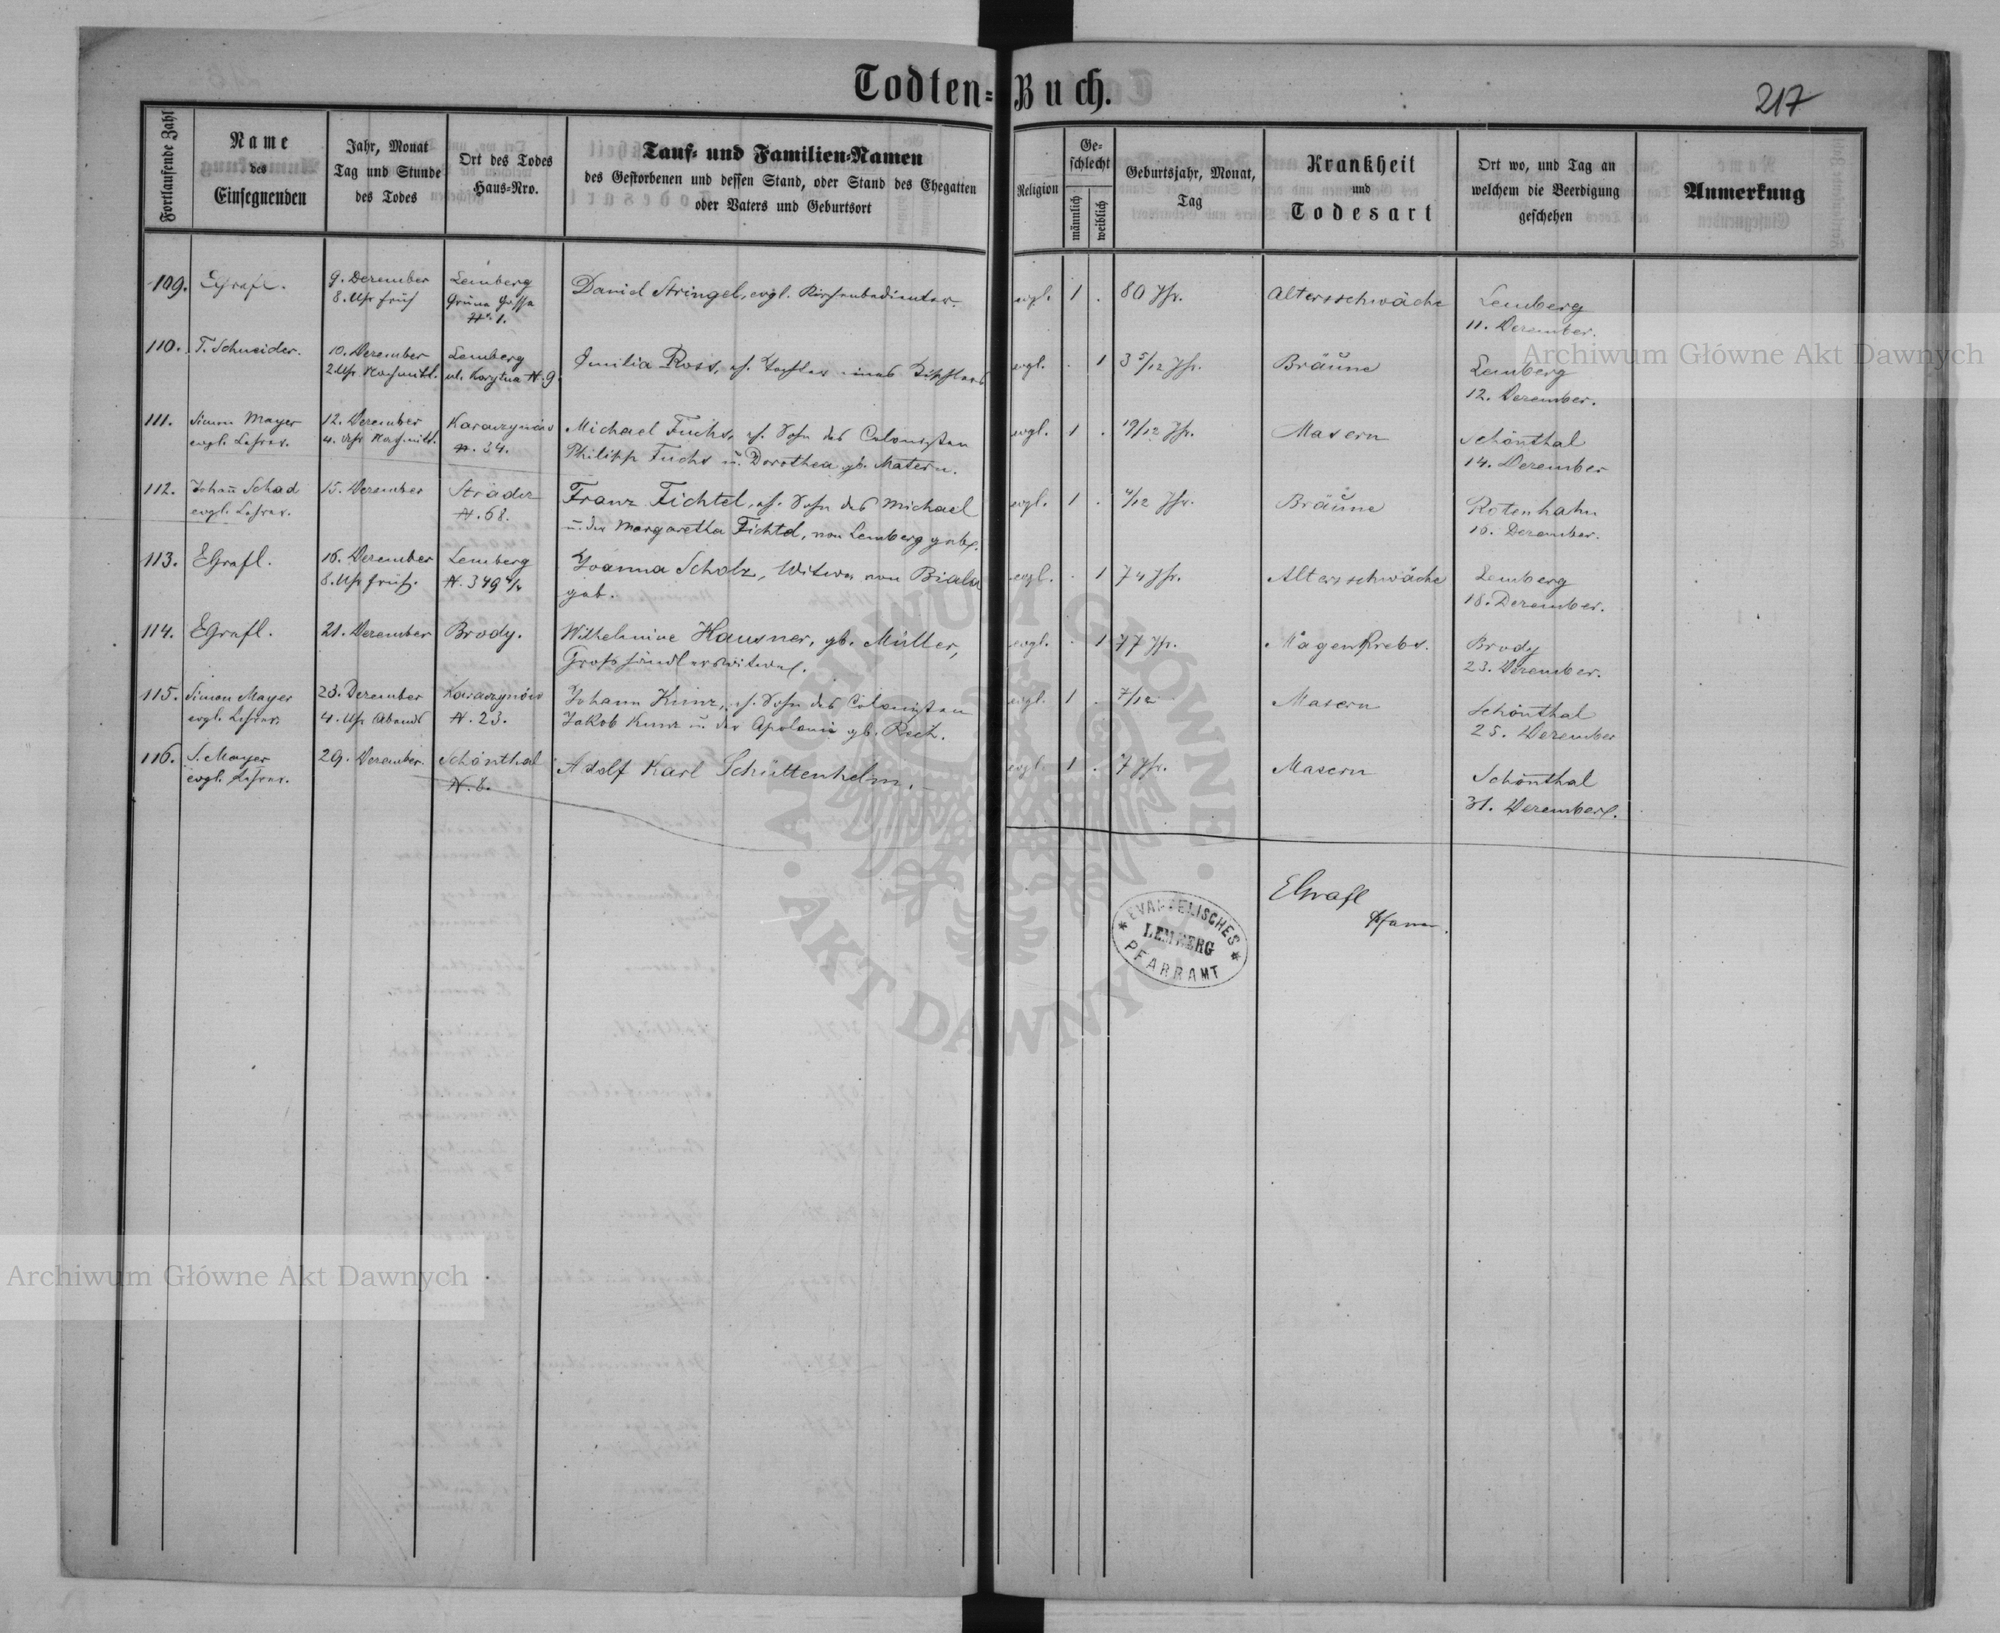 Todten-Buch.
217
Fortlaufende Zahl
Name
des
Einsegnenden
Jahr, Monat
Tag und Stunde
des Todes
Ort des Todes
Haus-Nro.
Tauf- und Familien-Namen
des Gestorbenen und dessen Stand, oder Stand des Ehegatten
oder Vaters und Geburtsort
Religion
Ge-
schlecht
männlich
weiblich
Geburtsjahr, Monat,
Tag
Krankheit
und
Todesart
Ort wo, und Tag an
welchem die Beerdigung
geschehen
Anmerkung
109. EGrafl. 9. Dezember Lemberg Daniel Stringel, evgl. Kirchenbedienter. evgl. 1 . 80 Jhr. Altersschwäche Lemberg
8. Uhr früh Grüne Gasse 11. Dezember.
N. 1.
110. T. Schneider. 10. Dezember Lemberg Emilia Ross, eh. Tochter eines Tischlers evgl. . 1 3 5/12 Jhr. Bräune Lemberg
2 Uhr Nachmitt. ul. N. 9 12. Dezember.
111. Simon Mayer 12. Dezember Karaczynów Michael Fuchs, eh. Sohn des Colonisten evgl. 1 . 19/12 Jhr. Masern Schönthal
evgl. Lehrer. 4. Uhr Nachmitt. N. 34. Philipp Fuchs u. Dorothea gb. Matern. 14. Dezember
112. Johann Schad 15. Dezember Stradcz Franz Fichtel, eh. Sohn des Michael evgl. 1 . /12 Jhr. Bräune Rotenhahn
evgl. Lehrer. N. 68. u. der Margaretha Fichtel, von Lemberg geb. 16. Dezember.
113. EGrafl. 16. Dezember Lemberg Joanna Scholz, Witwe von Biala evgl. . 1 74 Jhr. Altersschwäche Lemberg
8. Uhr früh. N. 349 geb. 18. Dezember.
114. EGrafl. 21. Dezember Brody. Wilhelmine Hausner, gb. Müller, evgl. . 1 77 Jhr. Magenkrebs. Brody
Grosshändlerswitwe. 23. Dezember.
115. Simon Mayer 23. Dezember Karaczynów Johann Kunz, eh. Sohn des Colonisten evgl. 1 . 7/12 Masern Schönthal
evgl. Lehrer. 4. Uhr Abends N. 23. Jakob Kunz u. der Apolonia gb. Rech. 25. Dezember
116. S. Mayer 29. Dezember. Schönthal Adolf Karl Schüttenhelm. evgl 1 . 7 Jhr. Masern Schönthal
evgl. Lehrer. N. 6. 31. Dezember.
EGrafl
Pfarrer.
EVANGELISCHES
LEMBERG
PFARRAMT
Archiwum Główne Akt Dawnych
Archiwum Główne Akt Dawnych
ARCHIWUM GŁÓWNE · AKT DAWNYCH ·